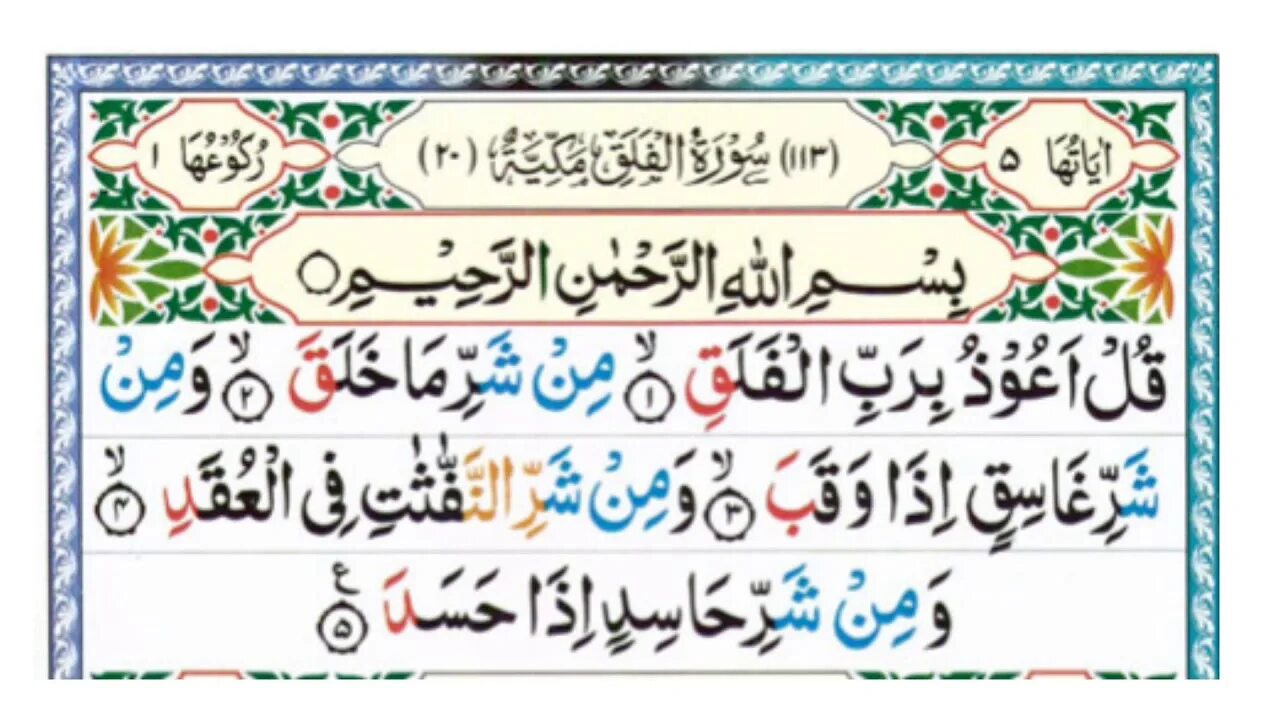 اٰيَاتُهَا ۵ (۱۱۳) سُوْرَةُ الْفَلَقِ مَكِّيَّةٌ (۲۰) رُكُوْعُهَا ۱
بِسْمِ اللّٰهِ الرَّحْمٰنِ الرَّحِيْمِ ○
قُلْ اَعُوْذُ بِرَبِّ الْفَلَقِ ۙ﴿۱﴾ مِنْ شَرِّ مَا خَلَقَ ۙ﴿۲﴾ وَمِنْ
شَرِّ غَاسِقٍ اِذَا وَقَبَ ۙ﴿۳﴾ وَمِنْ شَرِّ النَّفّٰثٰتِ فِی الْعُقَدِ ۙ﴿۴﴾
وَمِنْ شَرِّ حَاسِدٍ اِذَا حَسَدَ ﴿۵﴾ ع